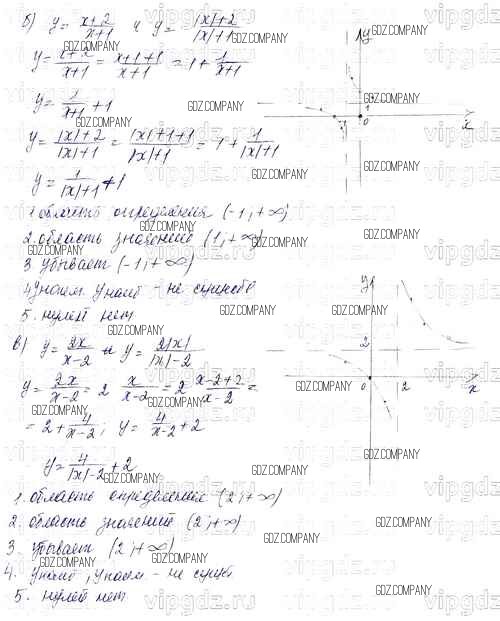 б) y = x+2/x+1 и y = |x|+2/|x|+1
y = x+2/x+1 = x+1+1/x+1 = 1 + 1/x+1
y = 1/x+1 + 1
y = |x|+2/|x|+1 = |x|+1+1/|x|+1 = 1 + 1/|x|+1
y = 1/|x|+1 + 1
y
1
0
x
1 область определения (-1; +∞)
2. область значений (1; +∞)
3 убывает (-1; +∞)
4 yнаим. yнаиб - не существ
5. нулей нет
в) y = 2x/x-2 и y = 2|x|/|x|-2
y = 2x/x-2 = 2 x/x-2 = 2 x-2+2/x-2 =
= 2 + 4/x-2; y = 4/x-2 + 2
y = 4/|x|-2 + 2
y
2
0
2
x
1. область определения (2; +∞)
2. область значений (2; +∞)
3. убывает (2; +∞)
4. yнаиб, yнаим. - не сущ.
5. нулей нет
GDZ.COMPANY
vipgdz.ru